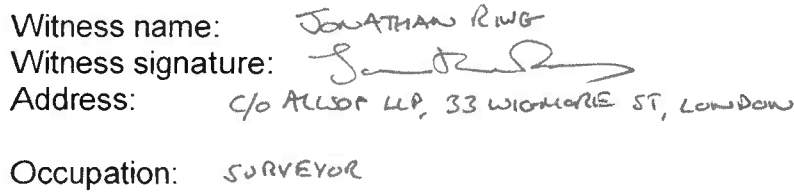 Witness name: JONATHAN RING
Witness signature:
Address: C/O ALLSOP LLP, 33 WIGMORE ST, LONDON
Occupation: SURVEYOR